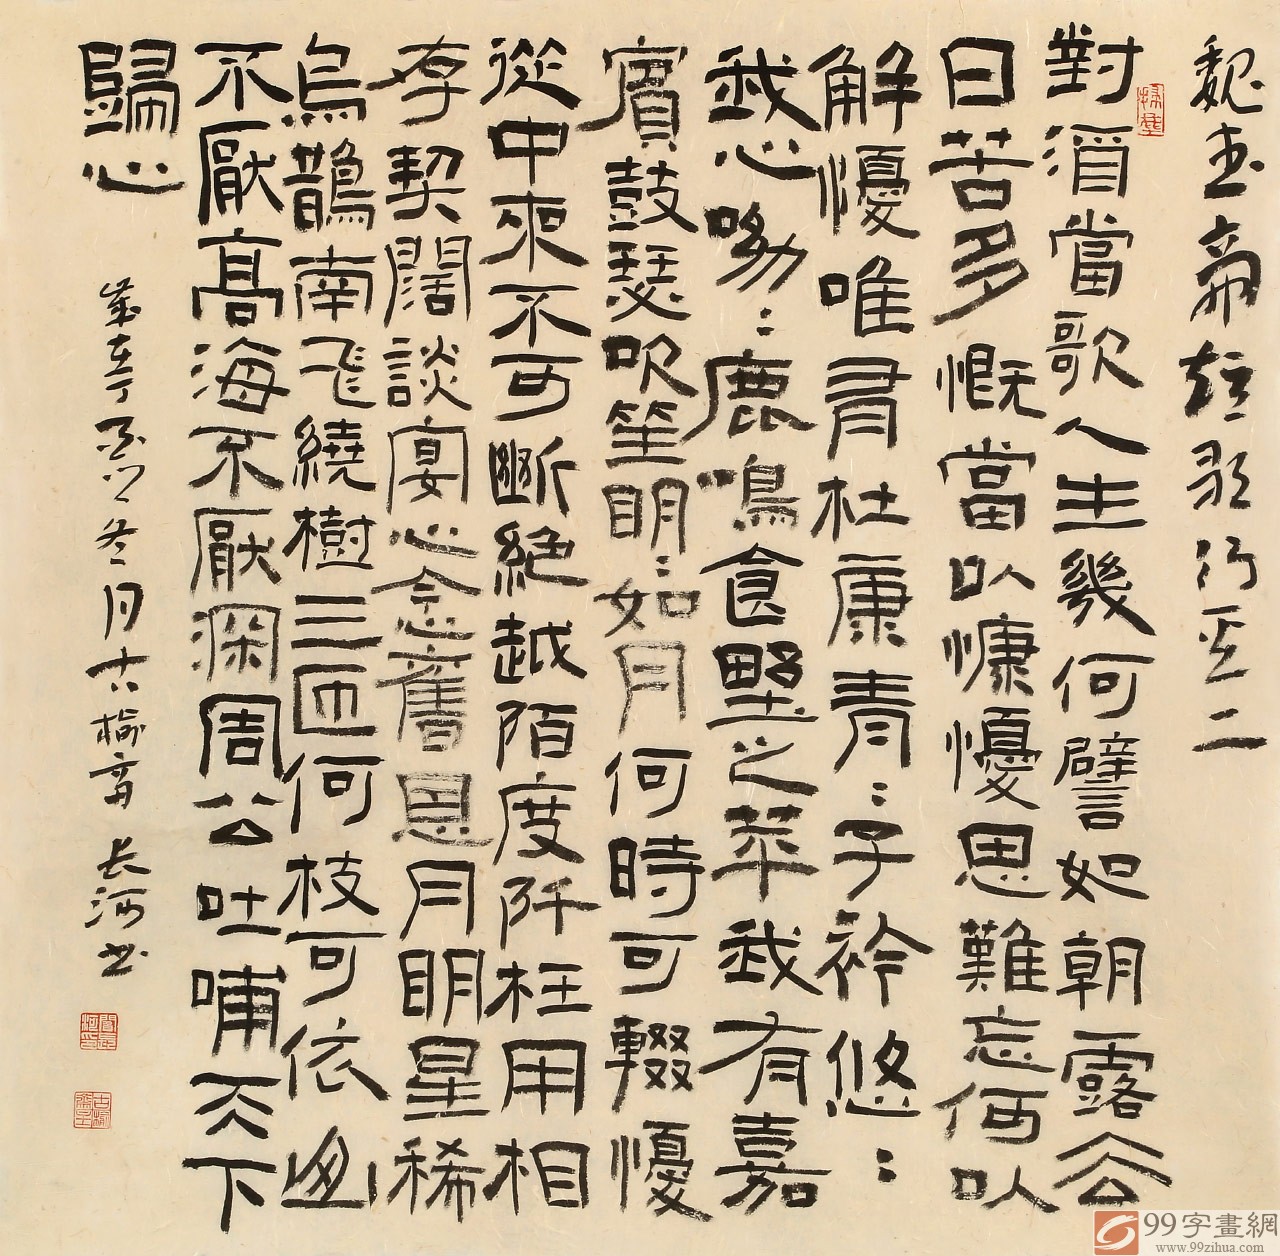 魏武帝短歌行其二
對酒當歌人生幾何譬如朝露去
日苦多慨當以慷懮思難忘何以
解懮唯有杜康青：子衿悠：
我心呦：鹿鳴食野之苹我有嘉
賓鼓瑟吹笙明：如月何時可輟懮
從中來不可斷絕越陌度阡枉用相
存契闊談宴心念舊恩月明星稀
烏鵲南飛繞樹三匝何枝可依山
不厭高海不厭深周公吐哺天下
歸心
歲在丁酉冬月榆齋長河書
99字畫網
www.99zihua.com